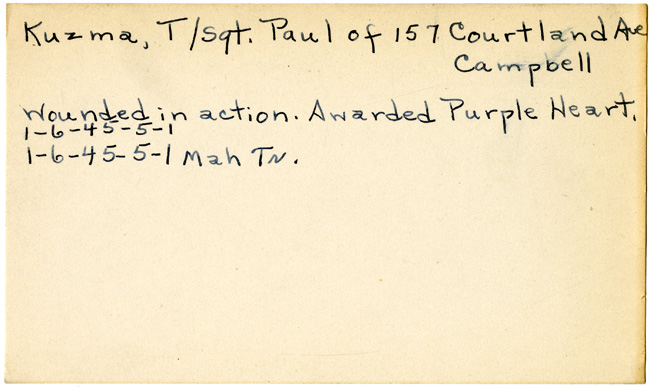 Kuzma, T/Sgt. Paul of 157 Courtland Ave
Campbell
Wounded in action. Awarded Purple Heart.
1-6-45-5-1
1-6-45-5-1 Mah Tr.